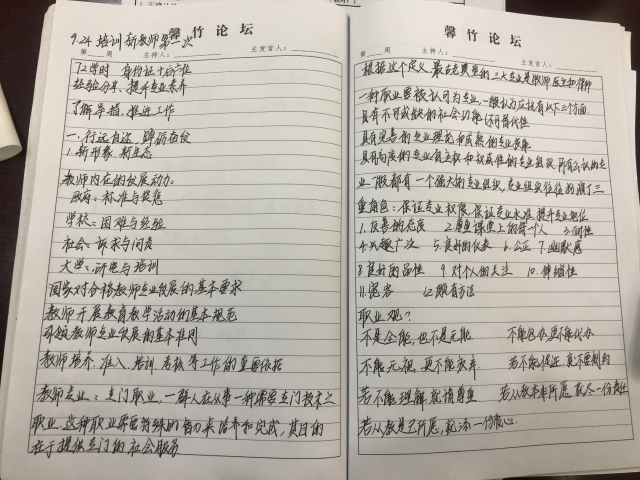 馨竹论坛
9.24 培训新教师第一次
第 周 主持人: 主发言人:
72学时 身份证十后六位
经验分享、提升专业素养
了解举措,推进工作
一、行远自迩,踔厉奋发
1.新形象 新生态
教师内在的发展动力:
政府:标准与奖惩
学校:困难与经验
社会:诉求与问责
大学:研究与培训
国家对合格教师专业发展的基本要求
教师开展教育教学活动的基本规范
引领教师专业发展的基本准则
教师培养、准入、培训、考核等工作的重要依据
教师专业:专门职业,一群人在从事一种需要专门技术之
职业,这种职业需要特殊的智力来培养和完成,其目的
在于提供专门的社会服务
馨竹论坛
第 周 主持人: 主发言人:
根据这个定义,最古老典型的三大专业是教师医生和律师
一种职业要被认可为专业,一般认为应该有以下三个方面:
具有不可或缺的社会功能(不可替代性
具有完善的专业理论和成熟的专业技能
具有高度的专业自主权和权威性的专业组织 所有公认的专
业一般都有一个强大的专业组织,专业组织往往扮演了三
重角色:保证专业权限,保证专业水准,提升专业地位
1.友善的态度 2.尊重课堂上的每个人 3.耐性
4.兴趣广泛 5.良好的仪表 6.公正 7.幽默感
8.良好的品性 9.对个人的关注 10.伸缩性
11.宽容 12.颇有方法
职业观?
不是全能,也不是无能 不能包办更不能代办
不能无视,更不能放弃 若不能保证,就不要制约
若不能理解就请尊重 若从教本非所愿,就尽一份责任
若从教是己所愿,就添一份爱心.